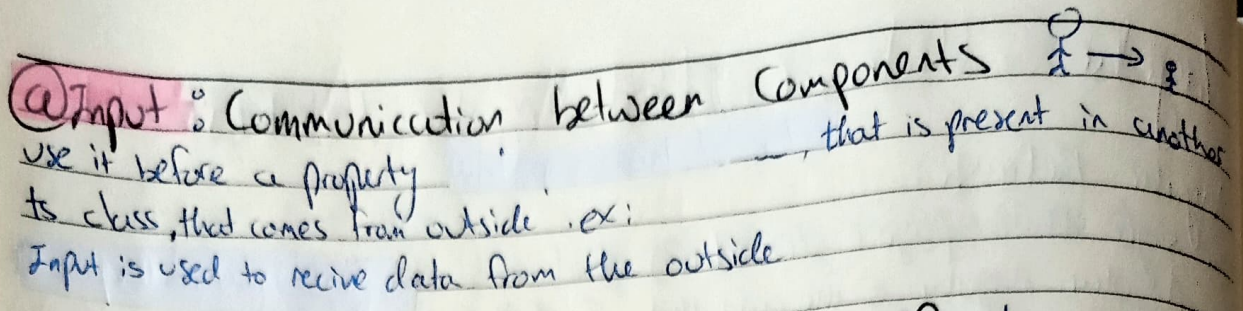 @Input : Communication between Components
use it before a property , that is present in another
ts class, that comes from outside . ex:
Input is used to recive data from the outside